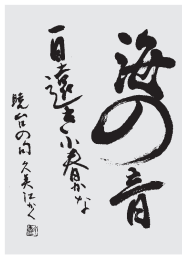 海の音
一日遠き小春かな
暁台の句 久美江かく